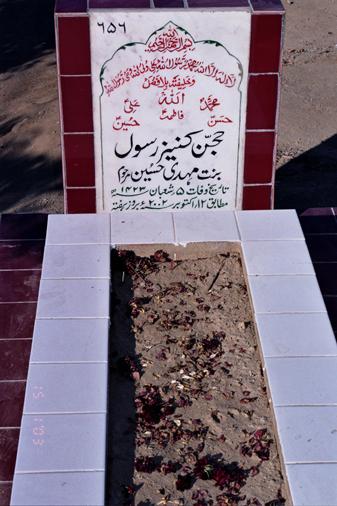 ۶۵۶
بسم اللہ الرحمن الرحیم
لا الہ الا اللہ محمد رسول اللہ علی ولی اللہ وصی رسول اللہ
وخلیفتہ بلا فصل
اللہ
محمدؐ علیؑ
فاطمہؑ
حسنؑ حسینؑ
ججن کنیز رسول
بنت مہدی حسین مرحوم
تاریخ وفات ۵ شعبان ۱۴۲۳ھ
مطابق ۱۲ اکتوبر ۲۰۰۲ء بروز ہفتہ